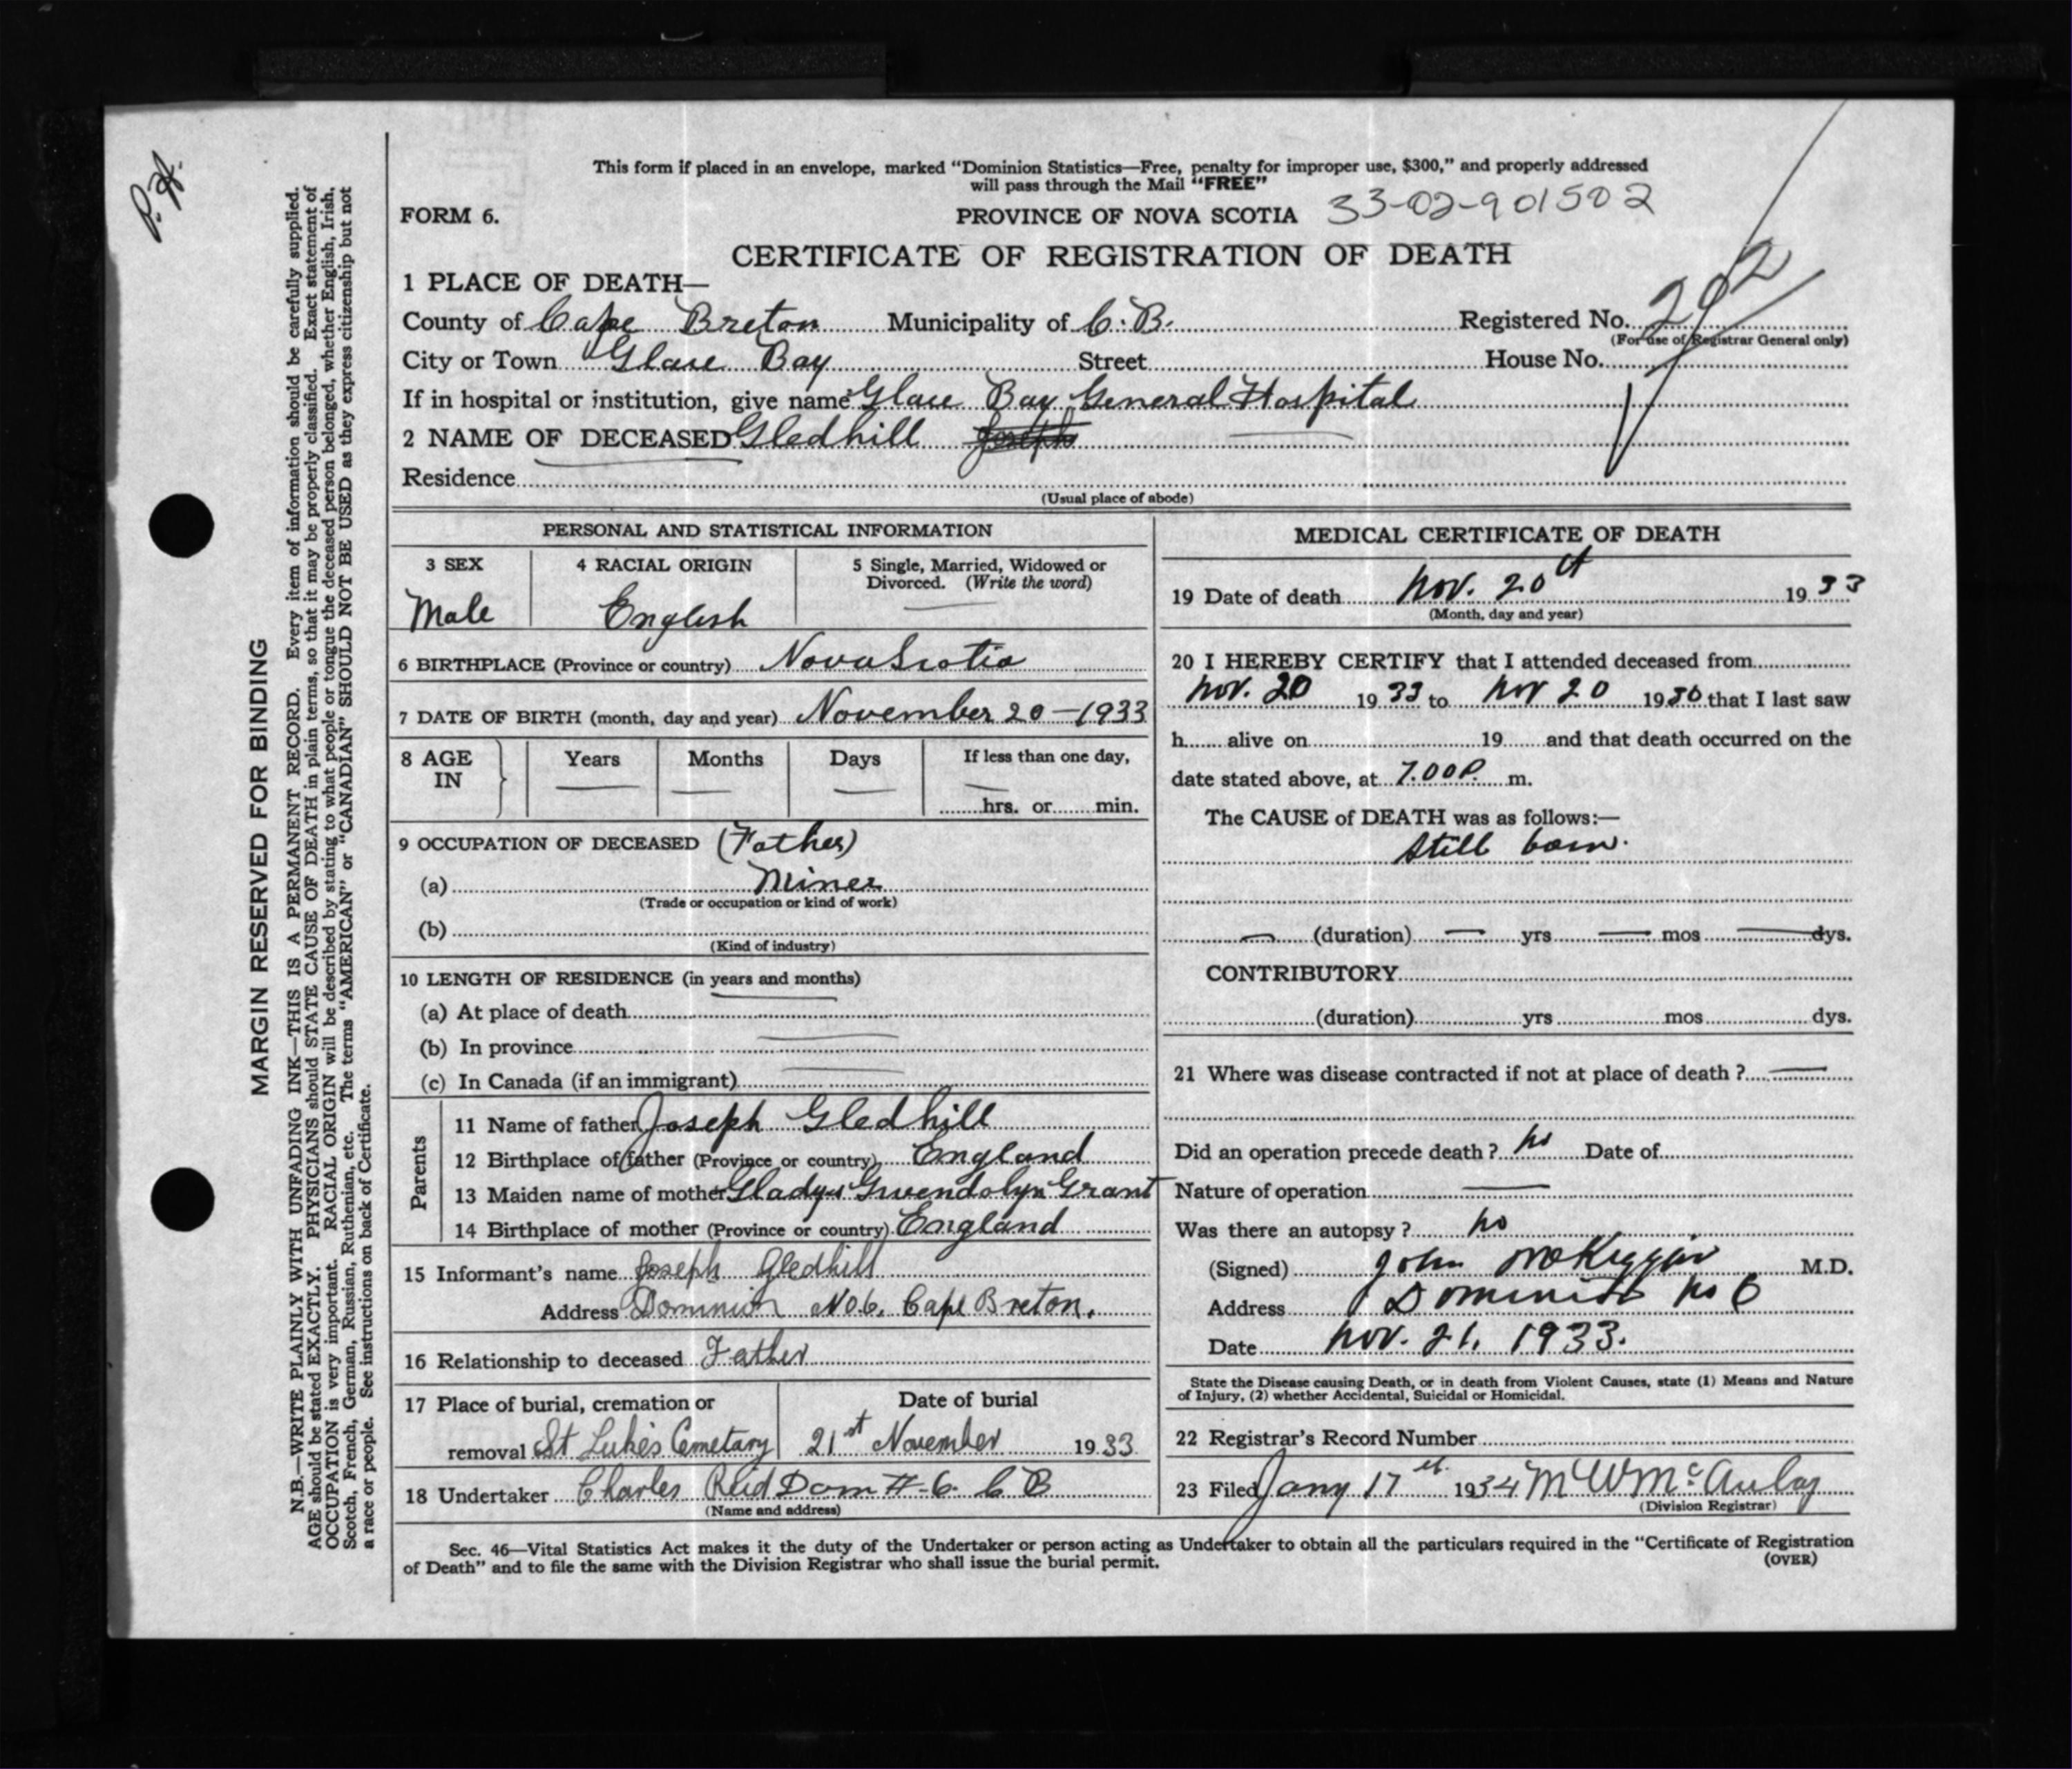 P.H.
This form if placed in an envelope, marked "Dominion Statistics—Free, penalty for improper use, $300," and properly addressed
will pass through the Mail "FREE"
FORM 6. PROVINCE OF NOVA SCOTIA 33-02-901502
CERTIFICATE OF REGISTRATION OF DEATH
1 PLACE OF DEATH—
County of Cape Breton Municipality of C.B. Registered No. 292
(For use of Registrar General only)
City or Town Glace Bay Street House No.
If in hospital or institution, give name Glace Bay General Hospital
2 NAME OF DECEASED Gledhill Joseph
Residence
(Usual place of abode)
PERSONAL AND STATISTICAL INFORMATION
3 SEX 4 RACIAL ORIGIN 5 Single, Married, Widowed or
Divorced. (Write the word)
Male English —
6 BIRTHPLACE (Province or country) Nova Scotia
7 DATE OF BIRTH (month, day and year) November 20 — 1933
8 AGE Years Months Days If less than one day,
IN — — — —
hrs. or min.
9 OCCUPATION OF DECEASED (Father)
(a) Miner
(Trade or occupation or kind of work)
(b)
(Kind of industry)
10 LENGTH OF RESIDENCE (in years and months)
(a) At place of death
(b) In province
(c) In Canada (if an immigrant)
Parents
11 Name of father Joseph Gledhill
12 Birthplace of father (Province or country) England
13 Maiden name of mother Gladys Gwendolyn Grant
14 Birthplace of mother (Province or country) England
15 Informant's name Joseph Gledhill
Address Dominion No 6. Cape Breton.
16 Relationship to deceased Father
17 Place of burial, cremation or Date of burial
removal St Luke's Cemetary 21st November 1933
18 Undertaker Charles Reid Dom #-6. C B
(Name and address)
MEDICAL CERTIFICATE OF DEATH
19 Date of death Nov. 20th 1933
(Month, day and year)
20 I HEREBY CERTIFY that I attended deceased from
Nov. 20 1933 to Nov 20 1930 that I last saw
h alive on 19 and that death occurred on the
date stated above, at 7.00 P. m.
The CAUSE of DEATH was as follows:—
Still born.
— (duration) — yrs — mos — dys.
CONTRIBUTORY
(duration) yrs mos dys.
21 Where was disease contracted if not at place of death ? —
Did an operation precede death ? No Date of
Nature of operation —
Was there an autopsy ? No
(Signed) John McKiggan M.D.
Address Dominion No 6
Date Nov. 21. 1933.
State the Disease causing Death, or in death from Violent Causes, state (1) Means and Nature
of Injury, (2) whether Accidental, Suicidal or Homicidal.
22 Registrar's Record Number
23 Filed Jany 17th 1934 M W McAulay
(Division Registrar)
Sec. 46—Vital Statistics Act makes it the duty of the Undertaker or person acting as Undertaker to obtain all the particulars required in the "Certificate of Registration
of Death" and to file the same with the Division Registrar who shall issue the burial permit. (OVER)
MARGIN RESERVED FOR BINDING
N.B.—WRITE PLAINLY WITH UNFADING INK—THIS IS A PERMANENT RECORD. Every item of information should be carefully supplied.
AGE should be stated EXACTLY. PHYSICIANS should STATE CAUSE OF DEATH in plain terms, so that it may be properly classified. Exact statement of
OCCUPATION is very important. RACIAL ORIGIN will be described by stating to what people or tongue the deceased person belonged, whether English, Irish,
Scotch, French, German, Russian, Ruthenian, etc. The terms "AMERICAN" or "CANADIAN" SHOULD NOT BE USED as they express citizenship but not
a race or people. See instructions on back of Certificate.